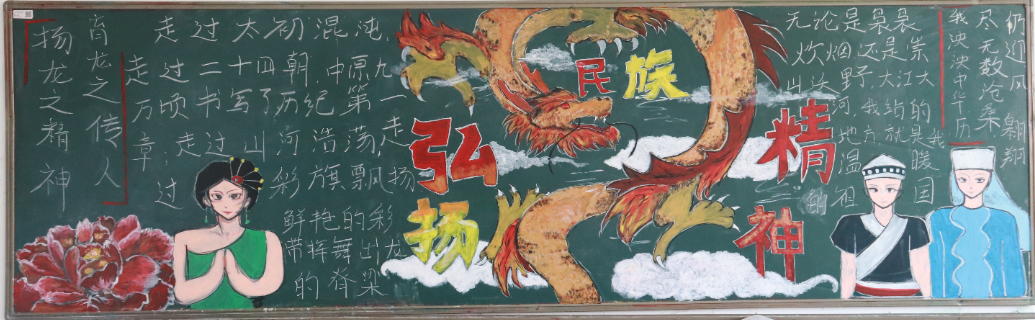 扬龙之精神
育龙之传人
走过太初混沌,
走过二十四朝中原九
万顷书写了历纪第一
章,走过山河浩荡,走
过彩旗飘扬
鲜艳的彩
带挥舞出龙
的脊梁
弘扬
民族
精神
无论是袅袅
炊烟还是崇
山
野是大江大
河,我站的
地方就是我
温暖
祖国
我泱泱中华历
尽无数沧桑
仍迎风翱翔